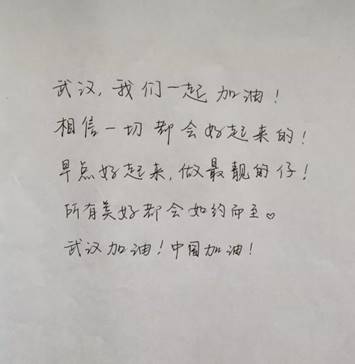 武汉,我们一起加油!
相信一切都会好起来的!
早点好起来,做最靓的仔!
所有美好都会如约而至♡
武汉加油!中国加油!